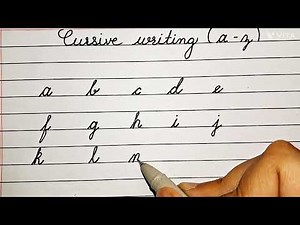 Cursive writing (a-z)
a b c d e
f g h i j
k l n